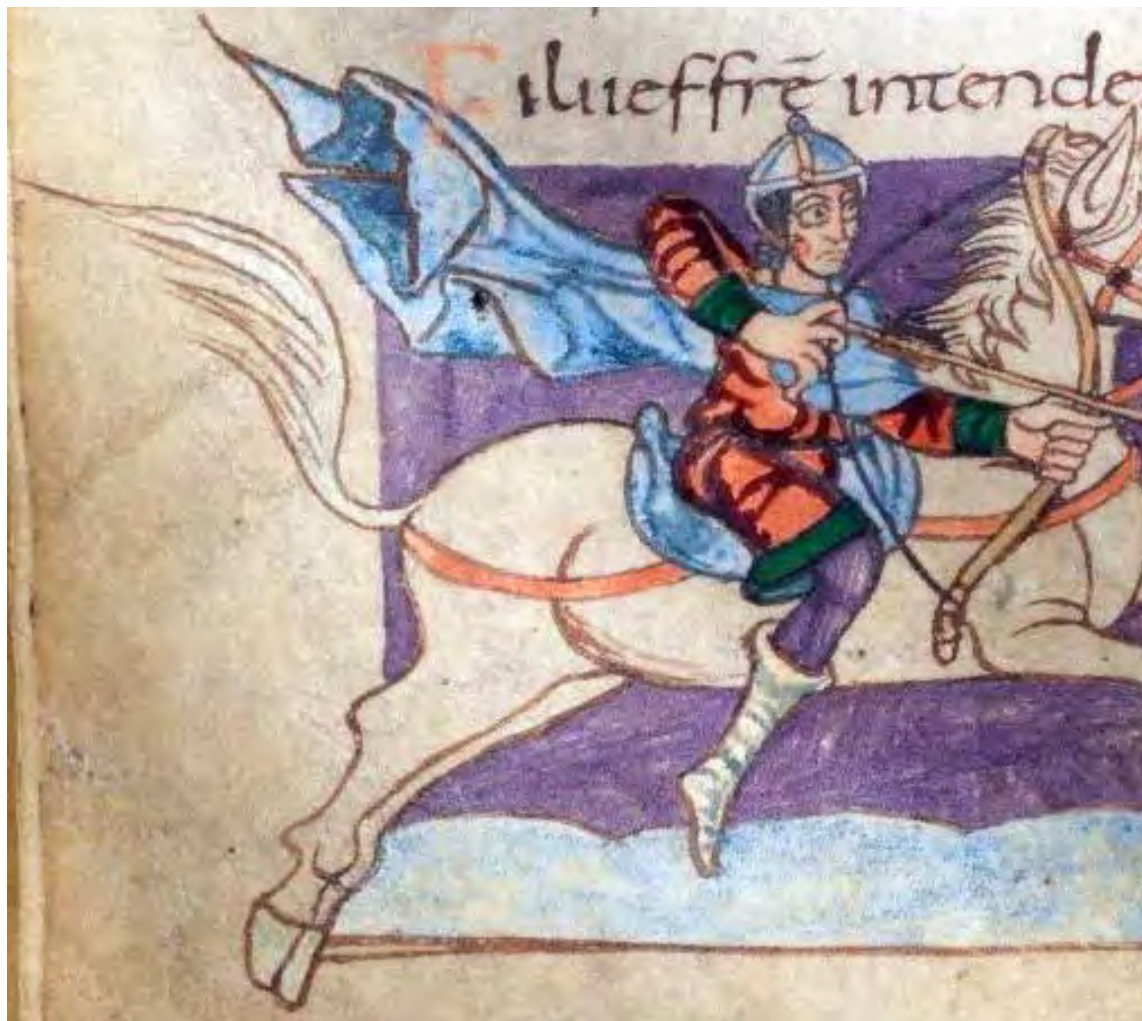 Filii effrē intende